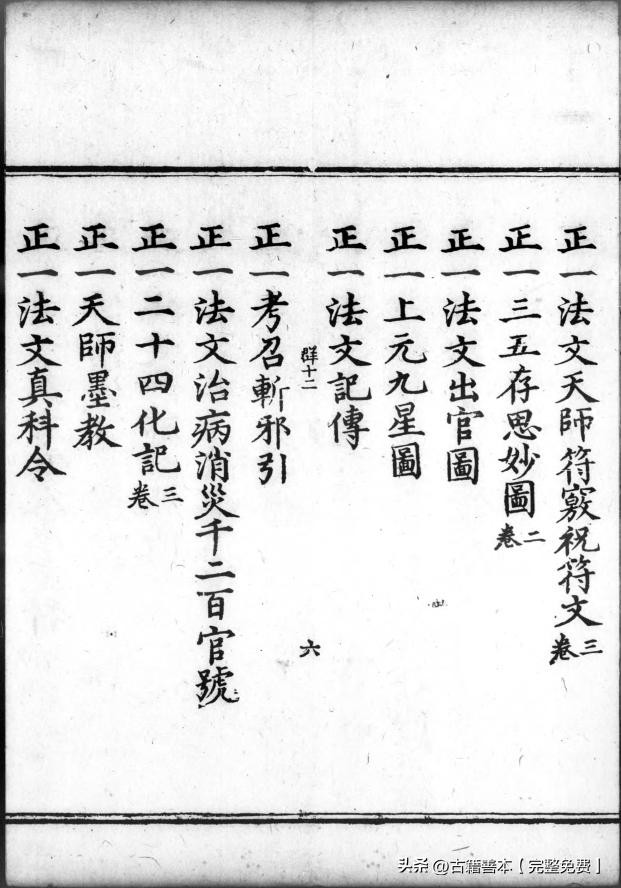 正一法文天師符竅祝符文三卷
正一三五存思妙圖二卷
正一法文出官圖
正一上元九星圖
正一法文記傳
群十二
六
正一考召斬邪引
正一法文治病消災千二百官號
正一二十四化記三卷
正一天師墨教
正一法文真科令
头条 @古籍善本【完整免费】